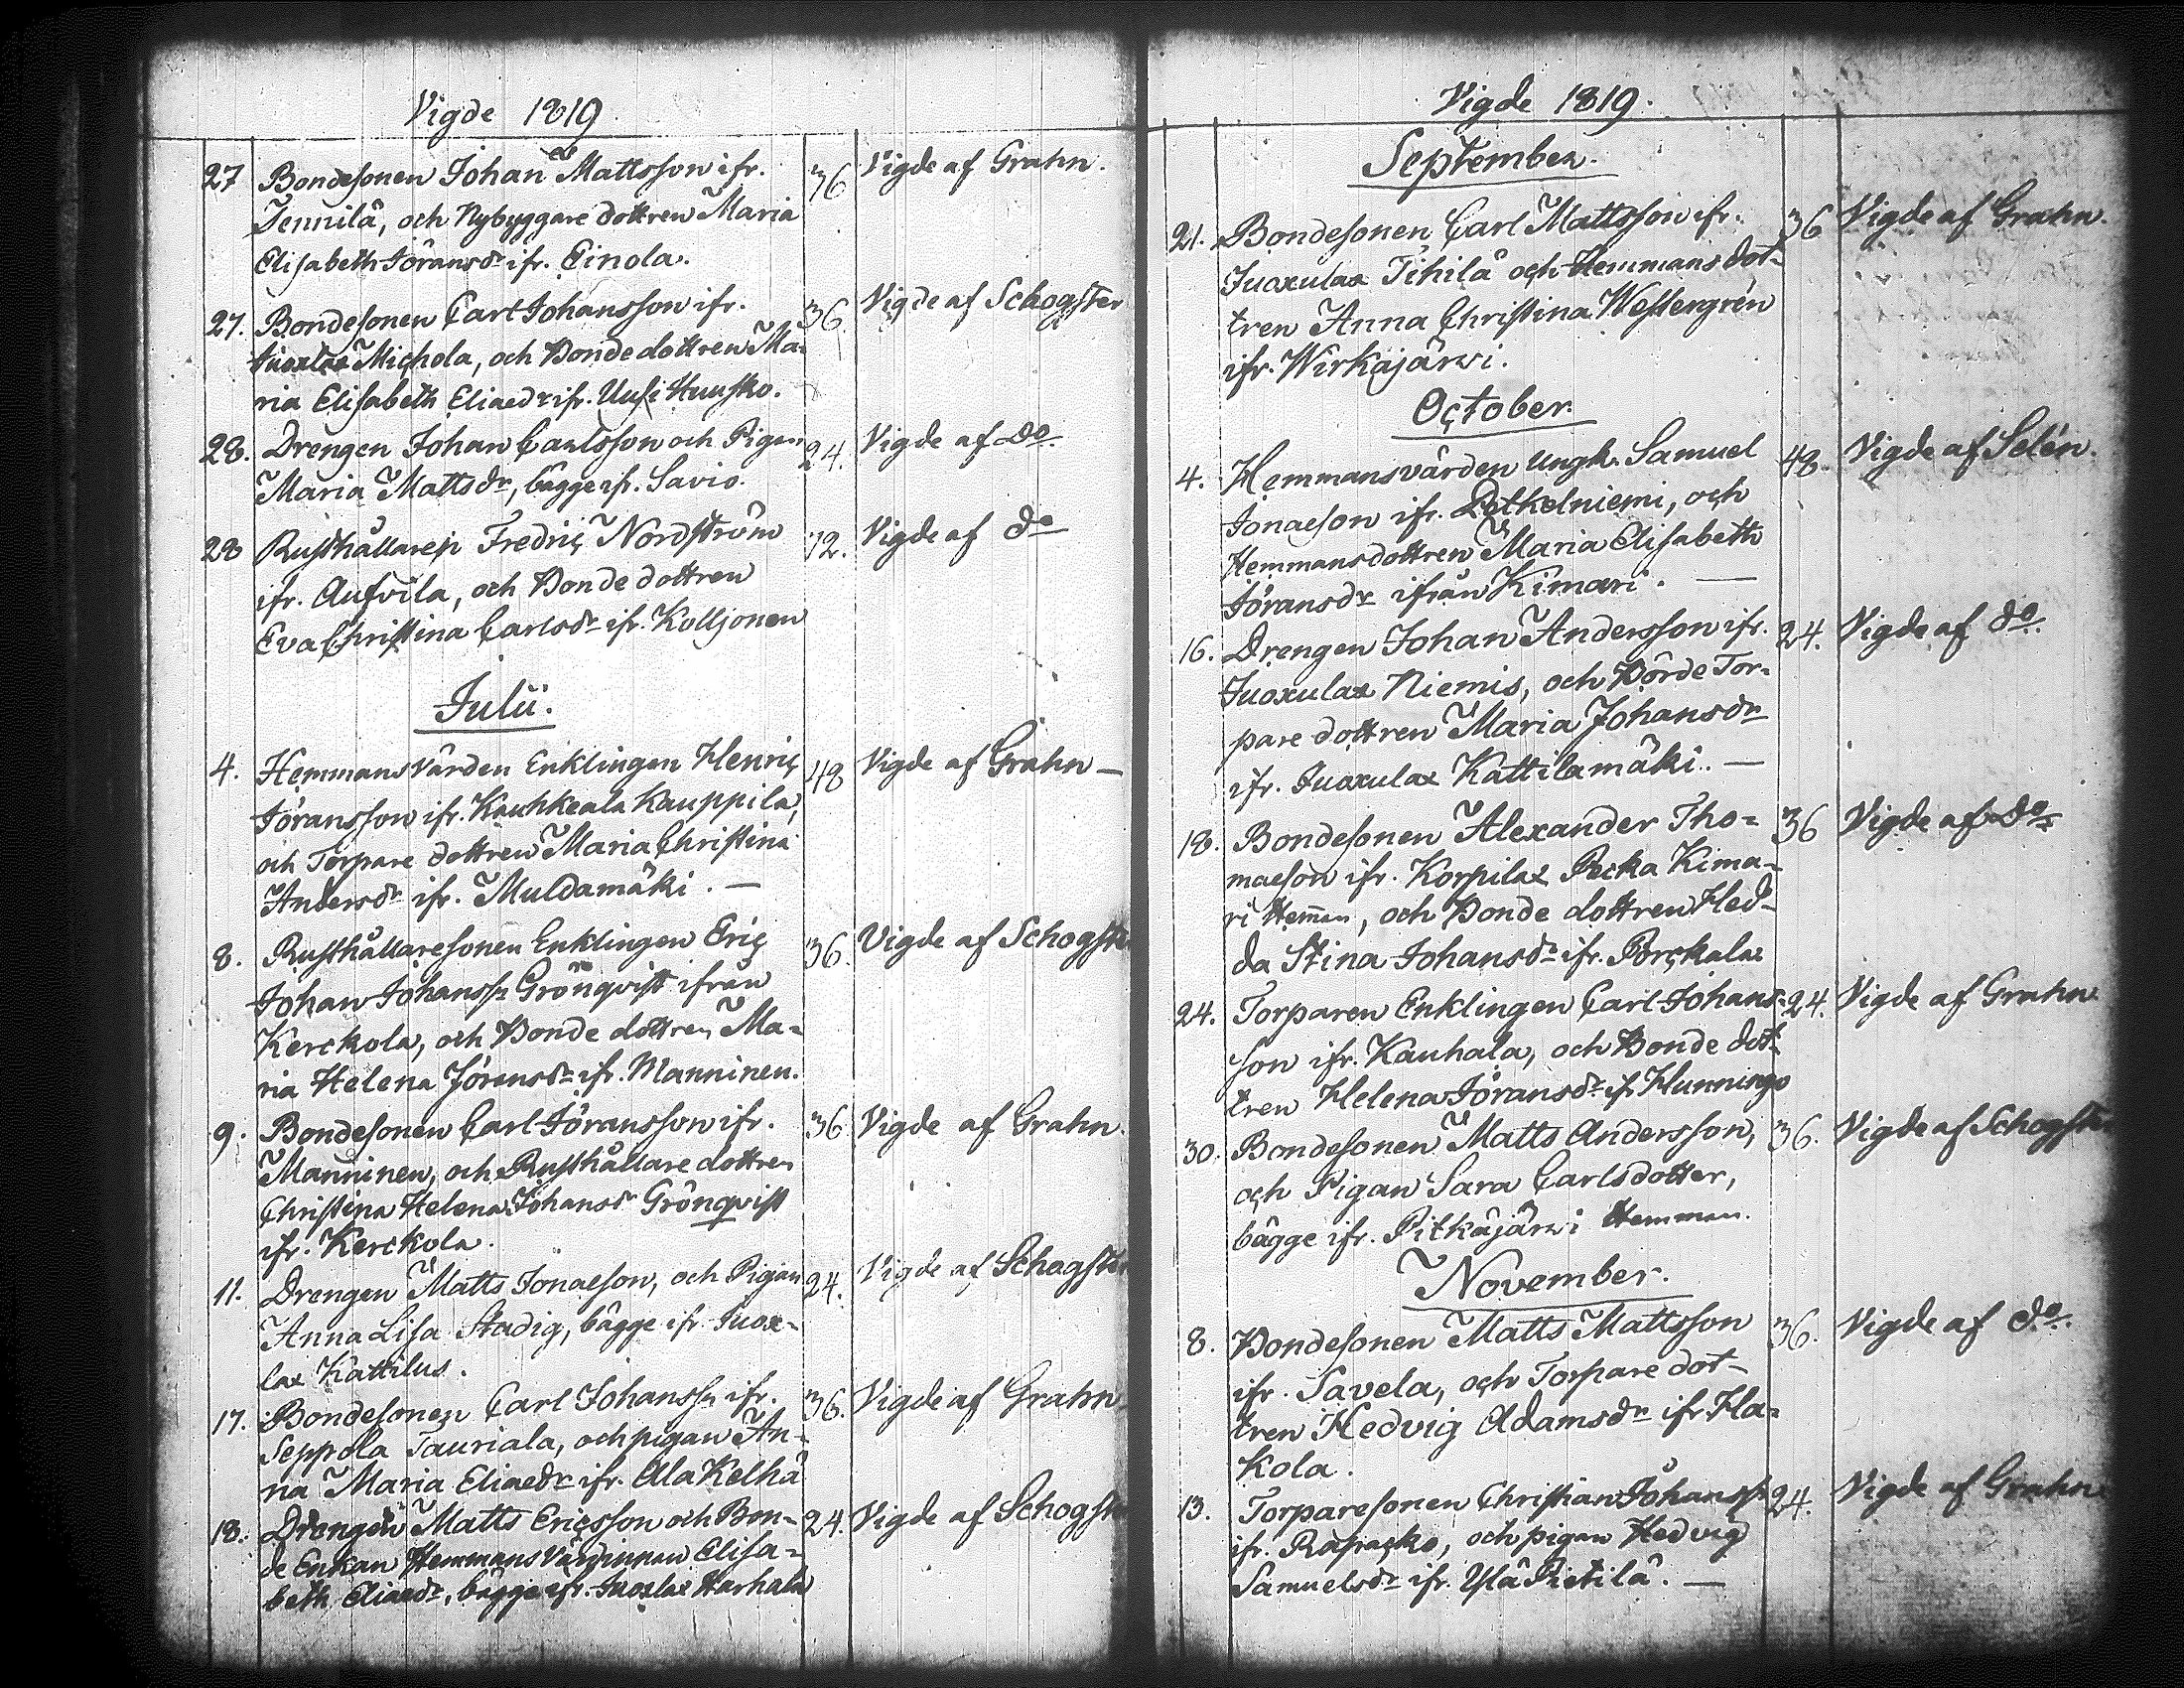 Vigde 1819.
27 Bondesonen Johan Mattsson ifr. 36 Vigde af Grahn.
Jennilä, och Nybyggare dottren Maria
Elisabeth Jöransdr ifr. Einola.
27. Bondesonen Carl Johansson ifr. 36. Vigde af Schogster
Michola, och Bondedottren Ma-
ria Elisabeth Eliaedr ifr. Uusi Huusko.
28. Drengen Johan Carlsson och Pigan 24. Vigde af do.
Maria Mattsdr, bägge ifr. Savio.
28 Rusthållaren Fredric Nordström 72. Vigde af do
ifr. Aufvila, och Bonde dottren
Eva Christina Carlsdr ifr. Kolljonen
Julii.
4. Hemmansvärden Enklingen Henric 48 Vigde af Grahn —
Jöransson ifr. Kauhkeala Kauppila,
och Torpare dottren Maria Christina
Andersdr ifr. Muldamäki. —
8. Rusthållaresonen Enklingen Eric 36. Vigde af Schogster
Johan Johanss. Grönqvist ifrån
Kerckola, och Bonde dottren Ma-
ria Helena Jöransdr ifr. Manninen.
9. Bondesonen Carl Jöransson ifr. 36 Vigde af Grahn.
Manninen, och Rusthållare dottren
Christina Helena Johansdr Grönqvist
ifr. Kerckola.
11. Drengen Matts Jonaeson, och Pigan 24. Vigde af Schogster
Anna Lisa Stadig, bägge ifr. Juox-
lax Kattilus.
17. Bondesonen Carl Johanss. ifr. 36. Vigde af Grahn
Seppola Tauriala, och pigan An-
na Maria Eliaedr ifr. Ala Kelhä
18. Drengen Matts Ericsson och Bon- 24. Vigde af Schogster
de Enkan Hemmans Värdinnan Elisa-
beth Eliaedr, bägge ifr. Juoxlax Harhala
Vigde 1819.
September.
21. Bondesonen Carl Mattsson ifr. 36 Vigde af Grahn.
Juoxulax Tihilä och Hemmans dot-
tren Anna Christina Westergrén
ifr. Wirkäjärvi.
October.
4. Hemmansvärden Ungk. Samuel 48. Vigde af Selén.
Jonaeson ifr. Pethelniemi, och
Hemmansdottren Maria Elisabeth
Jöransdr ifrån Kimari. —
16. Drengen Johan Andersson ifr. 24. Vigde af do.
Juoxulax Niemis, och Börde Tor-
pare dottren Maria Johansdr
ifr. Juoxulax Kattilamäki. —
18. Bondesonen Alexander Tho- 36 Vigde af Do.
maeson ifr. Korpilax Pecka Kima-
ri Hemman, och Bonde dottren Hed-
da Stina Johansdr ifr. Porckala.
24. Torparen Enklingen Carl Johans- 24. Vigde af Grahn.
son ifr. Kauhala, och Bonde dot-
tren Helena Jöransdr ifr Hunningo
30. Bondesonen Matts Andersson, 36. Vigde af Schogster
och Pigan Sara Carlsdotter,
bägge ifr. Pitkäjärvi Hemman.
November.
8. Bondesonen Matts Mattsson 36. Vigde af do.
ifr. Savela, och Torpare dot-
tren Hedvig Adamsdr ifr. Ha-
kola.
13. Torparesonen Christian Johanss. 24. Vigde af Grahn
ifr. och pigan Hedvig
Samuelsdr ifr. Ylä Pietilä. —